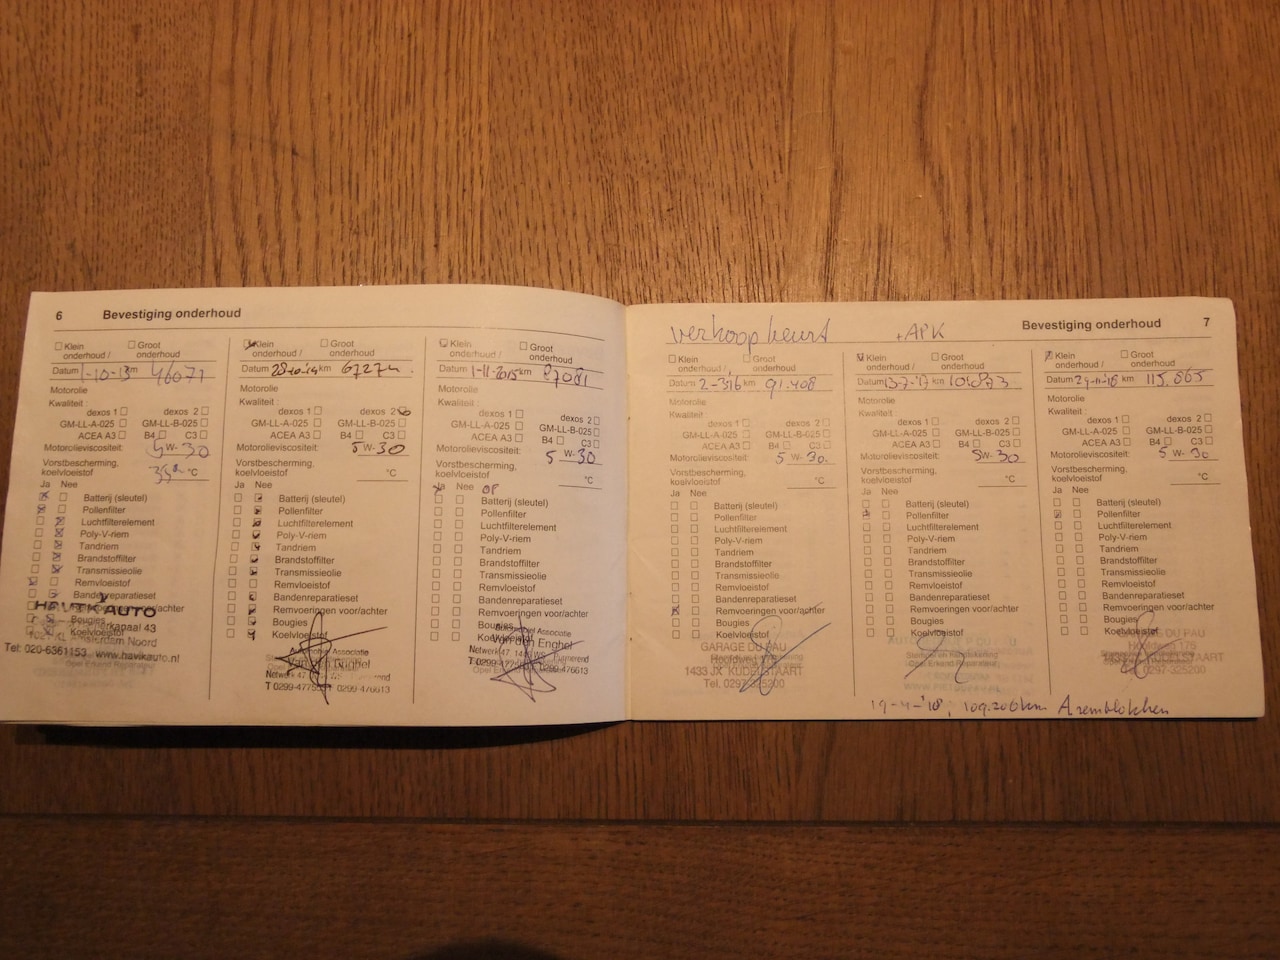 6 Bevestiging onderhoud
Klein onderhoud / Groot onderhoud
Datum 1-10-13 km 46071
Motorolie
Kwaliteit :
dexos 1
GM-LL-A-025 GM-LL-B-025
ACEA A3 B4 C3
Motorolieviscositeit: 5 W- 30
Vorstbescherming,
koelvloeistof °C
Ja Nee
Batterij (sleutel)
Pollenfilter
Luchtfilterelement
Poly-V-riem
Tandriem
Brandstoffilter
Transmissieolie
Remvloeistof
Bandenreparatieset
HAVIK AUTO
Bougies
Koelvloeistof
Tel: 020-6361153 www.havikauto.nl
Klein onderhoud / Groot onderhoud
Datum 28-10-14 km
Motorolie
Kwaliteit :
dexos 1 dexos 2
GM-LL-A-025 GM-LL-B-025
ACEA A3 B4 C3
Motorolieviscositeit: 5 W- 30
Vorstbescherming,
koelvloeistof °C
Ja Nee
Batterij (sleutel)
Pollenfilter
Luchtfilterelement
Poly-V-riem
Tandriem
Brandstoffilter
Transmissieolie
Remvloeistof
Bandenreparatieset
Remvoeringen voor/achter
Bougies
Koelvloeistof
Klein onderhoud / Groot onderhoud
Datum 1-11-2015 km 87081
Motorolie
Kwaliteit :
dexos 1 dexos 2
GM-LL-A-025 GM-LL-B-025
ACEA A3 B4 C3
Motorolieviscositeit: 5 W- 30
Vorstbescherming,
koelvloeistof °C
Ja Nee OP
Batterij (sleutel)
Pollenfilter
Luchtfilterelement
Poly-V-riem
Tandriem
Brandstoffilter
Transmissieolie
Remvloeistof
Bandenreparatieset
Remvoeringen voor/achter
Bougies
Automobiel Associatie
van den Enghel
verkoopbeurt +APK
Bevestiging onderhoud 7
Klein onderhoud / Groot onderhoud
Datum km 91.408
Motorolie
Kwaliteit :
dexos 1 dexos 2
GM-LL-A-025 GM-LL-B-025
ACEA A3 B4 C3
Motorolieviscositeit: 5 W- 30.
Vorstbescherming,
koelvloeistof °C
Ja Nee
Batterij (sleutel)
Pollenfilter
Luchtfilterelement
Poly-V-riem
Tandriem
Brandstoffilter
Transmissieolie
Remvloeistof
Bandenreparatieset
Remvoeringen voor/achter
Bougies
Koelvloeistof
GARAGE DU PAU
Hoofdweg 175
1433 JX KUDELSTAART
Tel. 0297-325200
Klein onderhoud / Groot onderhoud
Datum 13-7-'17 km
Motorolie
Kwaliteit :
dexos 1 dexos 2
GM-LL-A-025 GM-LL-B-025
ACEA A3 B4 C3
Motorolieviscositeit: 5W- 30
Vorstbescherming,
koelvloeistof °C
Ja Nee
Batterij (sleutel)
Pollenfilter
Luchtfilterelement
Poly-V-riem
Tandriem
Brandstoffilter
Transmissieolie
Remvloeistof
Bandenreparatieset
Remvoeringen voor/achter
Bougies
Koelvloeistof
Klein onderhoud / Groot onderhoud
Datum km 115.665
Motorolie
Kwaliteit :
dexos 1 dexos 2
GM-LL-A-025 GM-LL-B-025
ACEA A3 B4 C3
Motorolieviscositeit: 5 W- 30
Vorstbescherming,
koelvloeistof °C
Ja Nee
Batterij (sleutel)
Pollenfilter
Luchtfilterelement
Poly-V-riem
Tandriem
Brandstoffilter
Transmissieolie
Remvloeistof
Bandenreparatieset
Remvoeringen voor/achter
Bougies
Koelvloeistof
DU PAU
KUDELSTAART
Tel. 0297-325200
19-4-'18, 109.206km A remblokken